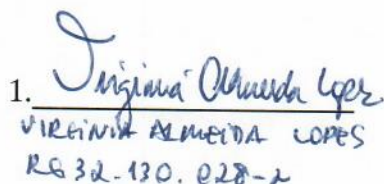 1. Virginia Almeida Lopes
VIRGINIA ALMEIDA LOPES
RG 32.130.028-2